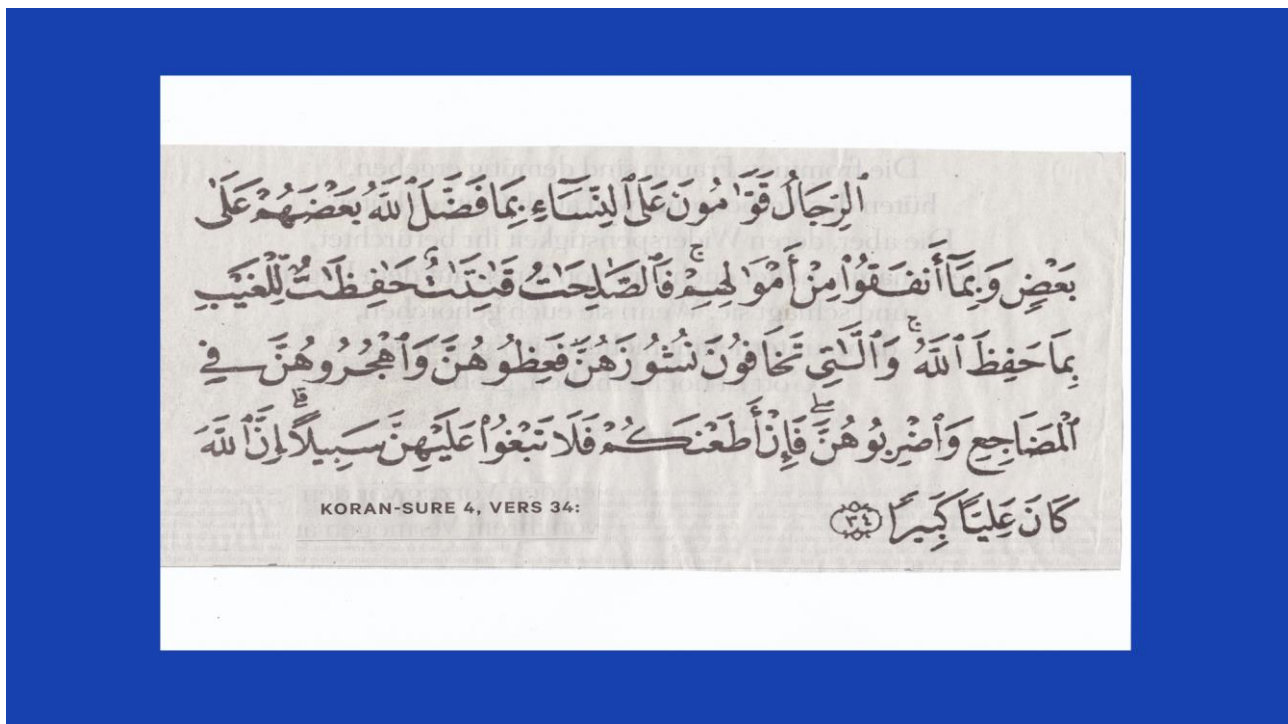 ٱلرِّجَالُ قَوَّٰمُونَ عَلَى ٱلنِّسَآءِ بِمَا فَضَّلَ ٱللَّهُ بَعْضَهُمْ عَلَىٰ
بَعْضٍ وَبِمَآ أَنفَقُوا۟ مِنْ أَمْوَٰلِهِمْ ۚ فَٱلصَّٰلِحَٰتُ قَٰنِتَٰتٌ حَٰفِظَٰتٌ لِّلْغَيْبِ
بِمَا حَفِظَ ٱللَّهُ ۚ وَٱلَّٰتِى تَخَافُونَ نُشُوزَهُنَّ فَعِظُوهُنَّ وَٱهْجُرُوهُنَّ فِى
ٱلْمَضَاجِعِ وَٱضْرِبُوهُنَّ ۖ فَإِنْ أَطَعْنَكُمْ فَلَا تَبْغُوا۟ عَلَيْهِنَّ سَبِيلًا ۗ إِنَّ ٱللَّهَ
كَانَ عَلِيًّا كَبِيرًا ٣٤
KORAN-SURE 4, VERS 34: